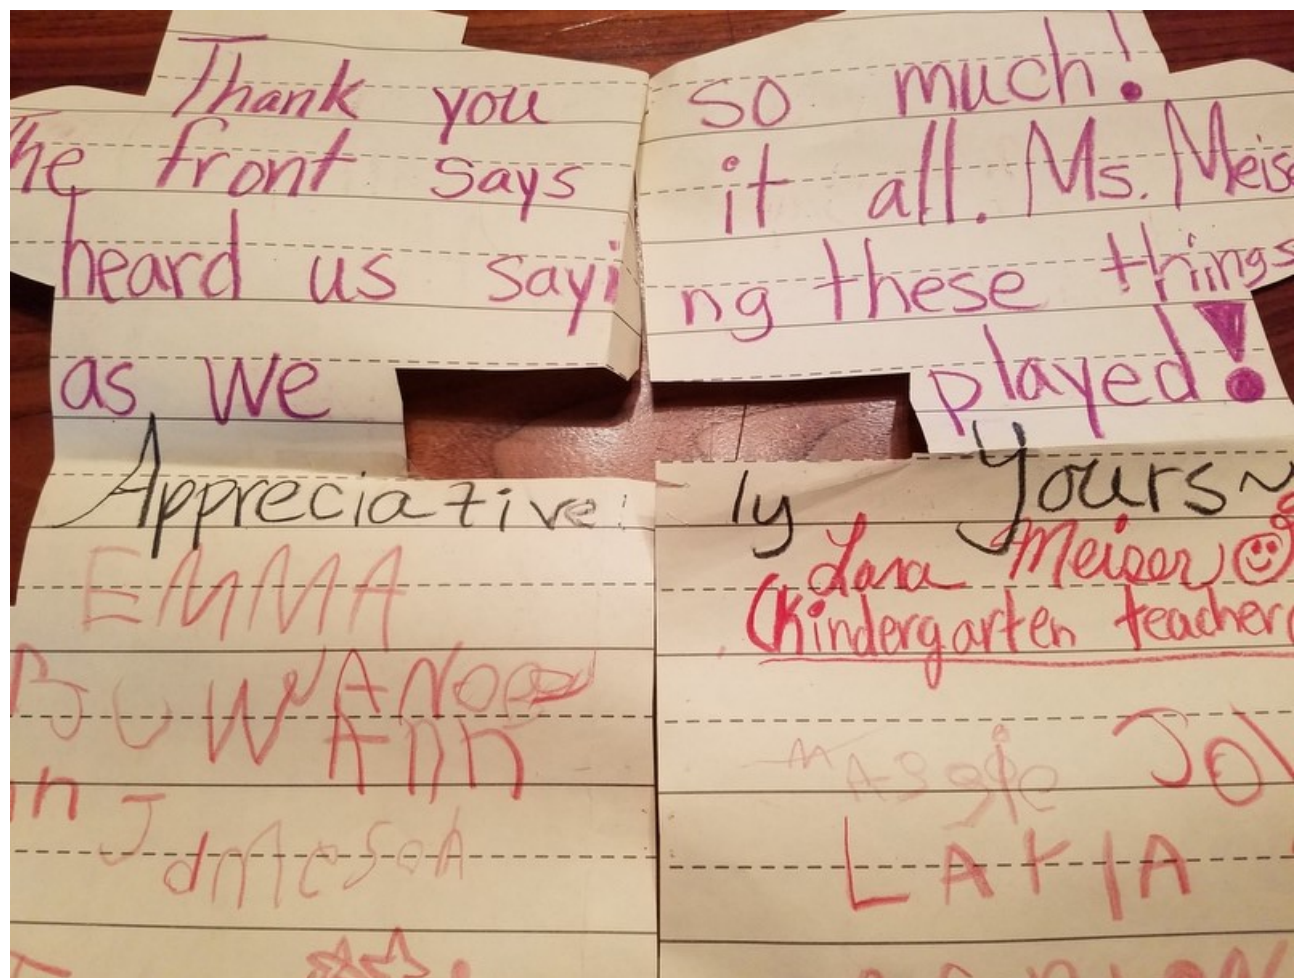 Thank you so much!
The front says it all. Ms. Meise
heard us saying these things
as we played!
Appreciatively Yours~
Lara Meiser
(Kindergarten teacher
EMMA
ANN
Jameson
LATIA